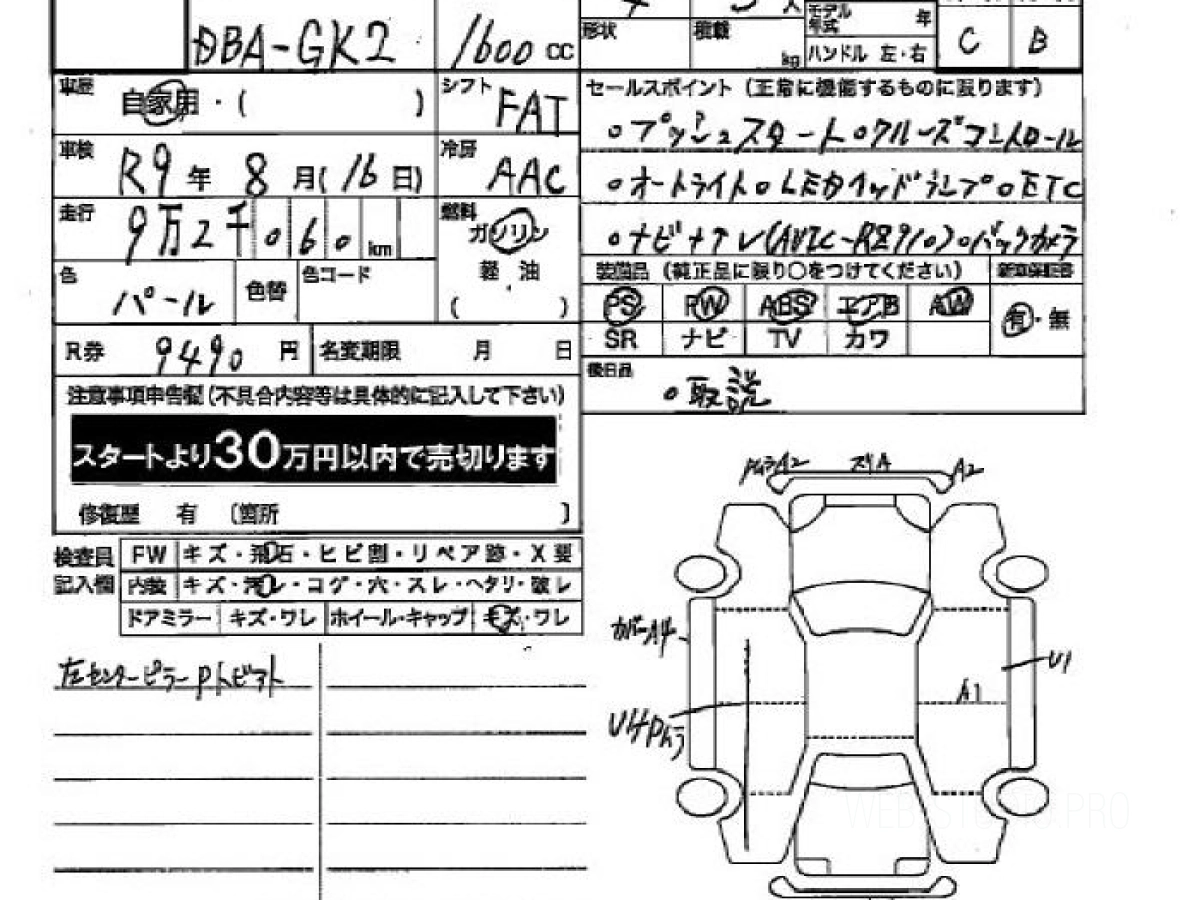 DBA-GK2 1600 cc
形状 積載 kg
モデル年式 年
ハンドル 左・右
C B
車歴 自家用・( )
シフト FAT
車検 R9年8月(16日)
冷房 AAC
走行 9万2千060km
燃料 ガソリン
軽・油
( )
色 パール 色替 色コード
R券 9490円 名変期限 月 日
セールスポイント(正常に機能するものに限ります)
○プッシュスタート○クルーズコントロール
○オートライト○LEDヘッドランプ○ETC
○ナビ+テレ(AVIC-RZ910)○バックカメラ
装備品(純正品に限り○をつけてください) 新車保証書
PS PW ABS エアB AW 有・無
SR ナビ TV カワ
後日品 ○取説
注意事項申告欄(不具合内容等は具体的に記入して下さい)
スタートより30万円以内で売切ります
修復歴 有 〔箇所 〕
検査員記入欄
FW キズ・飛石・ヒビ割・リペア跡・X要
内装 キズ・汚レ・コゲ・穴・スレ・ヘタリ・破レ
ドアミラー キズ・ワレ ホイール・キャップ キズ・ワレ
左センターピラーPトビアト
A2 スリA A2
カバーA4
U1
A1
WEB-STUDIO.PRO